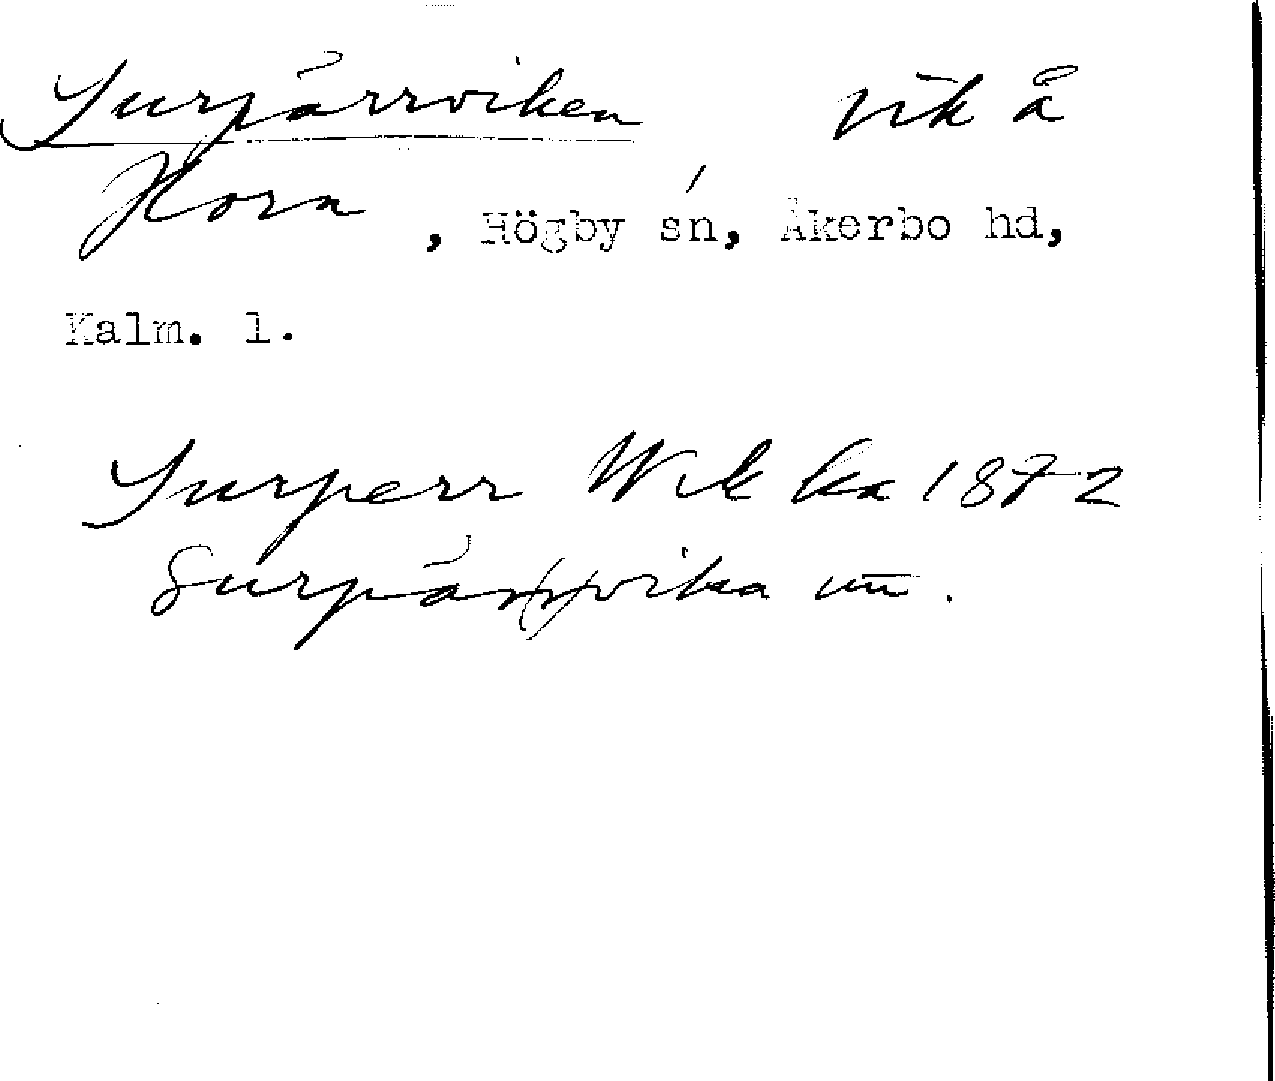 Surpärrviken vik å
Horn, Högby sn, Åkerbo hd,
Kalm. l.
Surperr Wik ka 1872
Surpär(r)vika un.